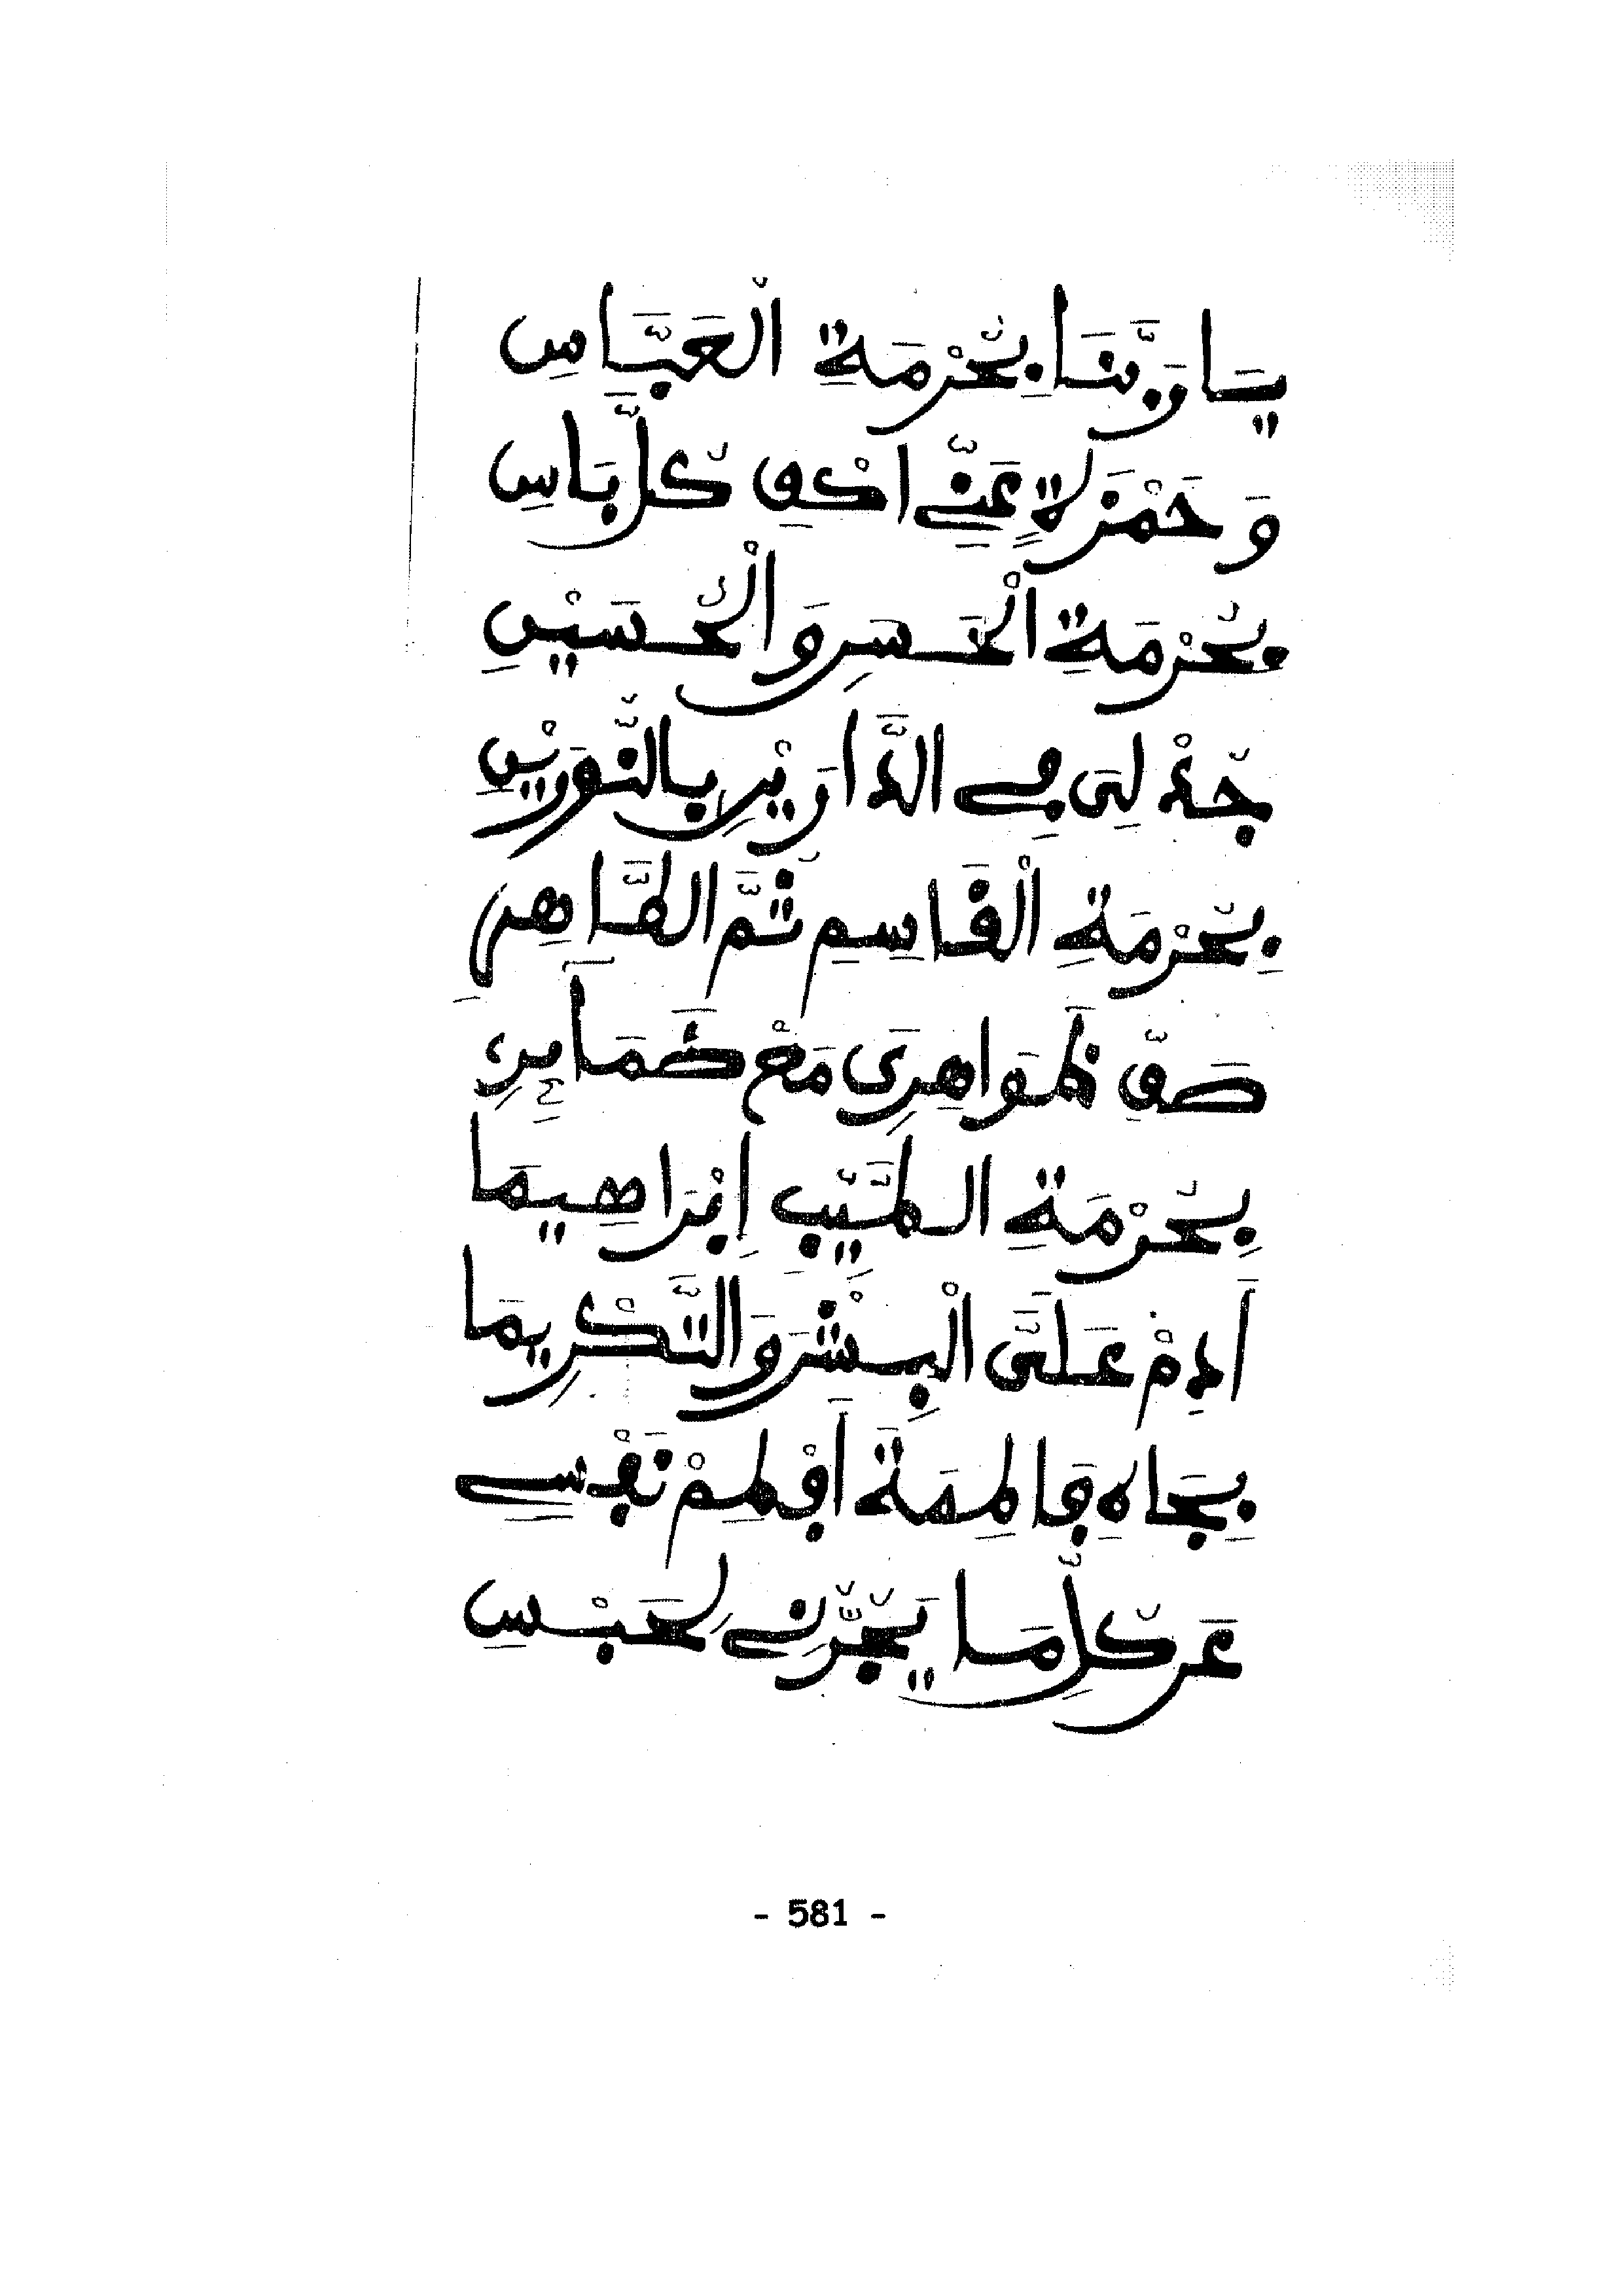 يَا رَبَّنَا بِحُرْمَةِ الْعَبَّاسِ
وَحَمْزَةٍ عَنِّي اكْفِ كُلَّ بَاسِ
بِحُرْمَةِ الْحَسَنِ وَالْحُسَيْنِ
جُدْ لِي فِي الدَّارَيْنِ بِالنُّورَيْنِ
بِحُرْمَةِ الْقَاسِمِ ثُمَّ الطَّاهِرِ
صَفِّ ظَوَاهِرِي مَعْ ضَمَائِرِ
بِحُرْمَةِ الطَّيِّبِ إِبْرَاهِيمَا
أَدِمْ عَلَيَّ الْبِشْرَ وَالتَّكْرِيمَا
بِجَاهِ فَاطِمَةَ افْطِمْ نَفْسِي
عَن كُلِّ مَا يَجُرُّنِي لِحَبْسِ
- 581 -